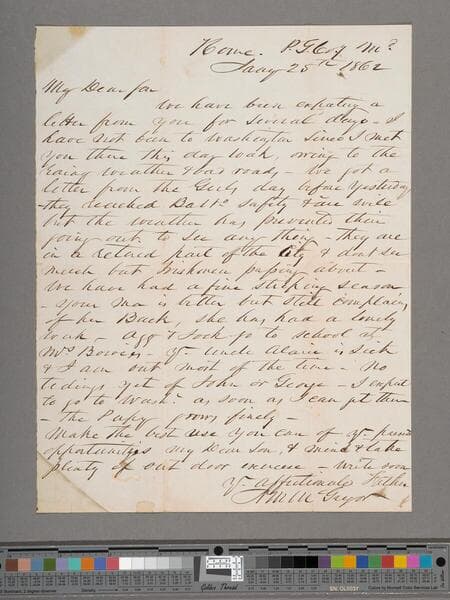 Home. P. G. Coy Md.
Jany 25th 1862
My Dear Son
We have been expecting a
letter from you for several days - I
have not been to Washington since I met
you there this day week, owing to the
rainy weather & bad roads - We got a
letter from the Girls day before yesterday
they reached Balto safely & are well
but the weather has prevented their
going out to see any thing - they are
in a retired part of the City & don't see
much but Irishmen passing about -
We have had a fine season
- Your Ma is better but still complains
of her Back she has had a lonely
week - Agg & go to school at
Mrs Bowens - Yr Uncle Alaric is Sick
& I am out most of the time - No
tidings yet of John or George - I expect
to go to Washn as soon as I can get there
- the Pupy grows finely -
Make the best use you can of yr
opportunities my Dear Son, & mind & take
plenty of out door exercise - Write soon
Yr affectionate Father
Golden Thread